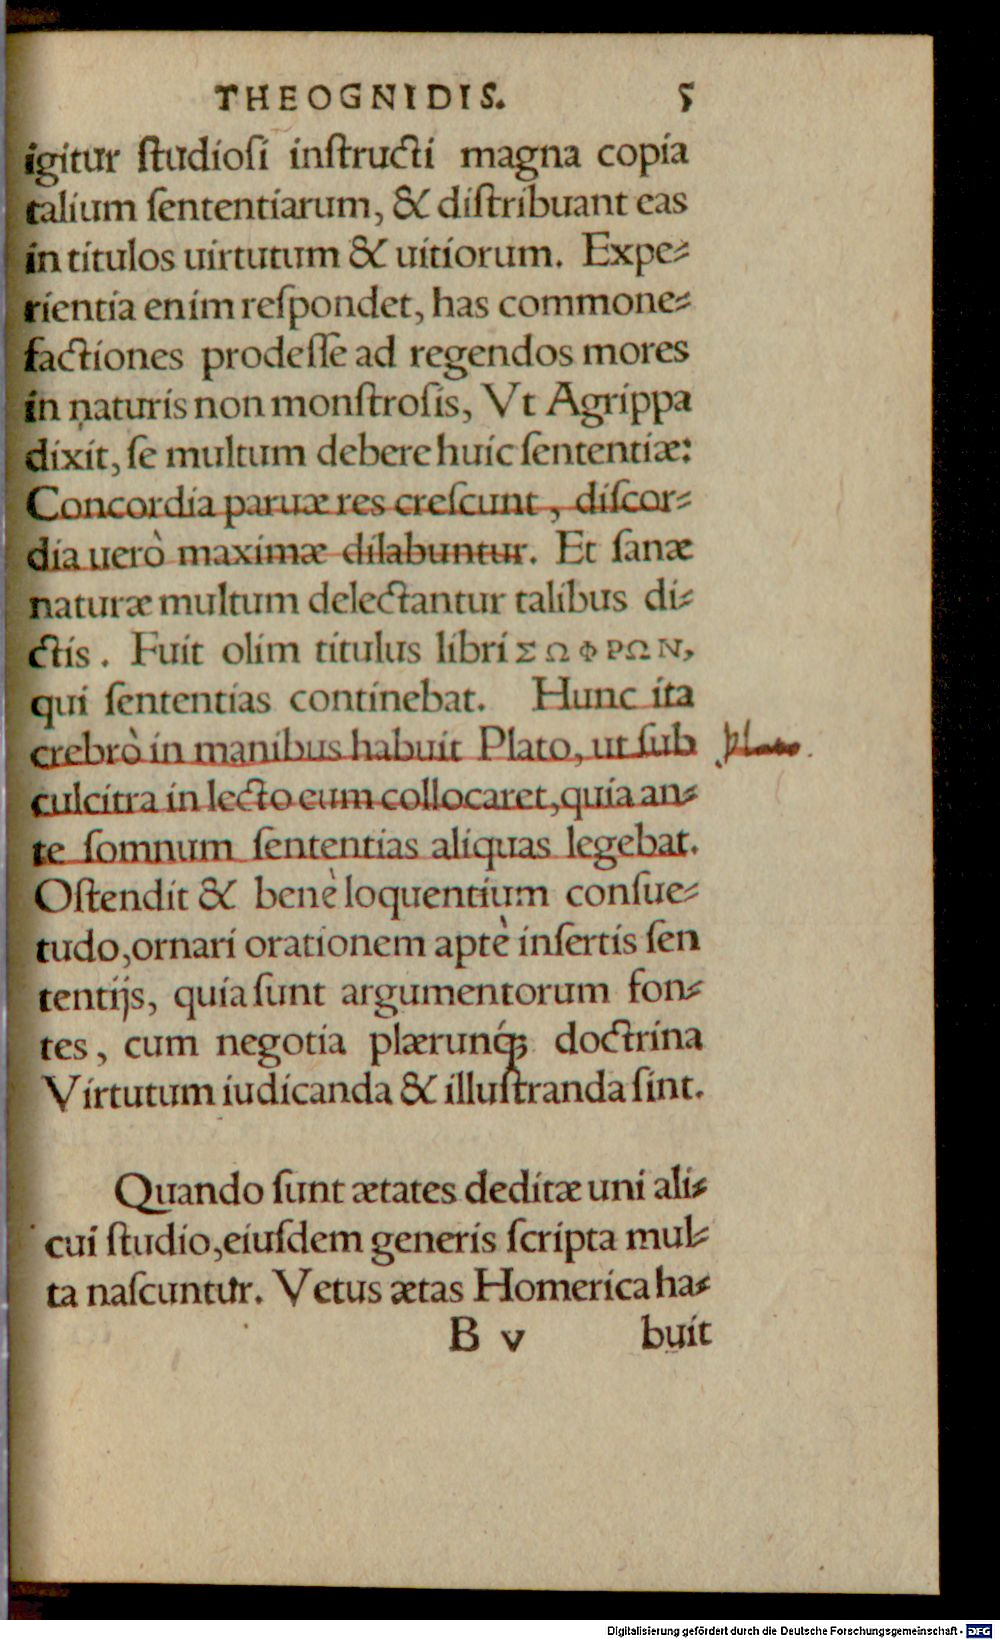 THEOGNIDIS. 5
igitur ſtudioſi inſtructi magna copia
talium ſententiarum, & diſtribuant eas
in titulos uirtutum & uitiorum. Expe⸗
rientia enim reſpondet, has commone⸗
factiones prodeſſe ad regendos mores
in naturis non monſtroſis, Vt Agrippa
dixit, ſe multum debere huic ſententiæ:
Concordia paruæ res creſcunt, diſcor⸗
dia uerò maximæ dilabuntur. Et ſanæ
naturæ multum delectantur talibus di⸗
ctis. Fuit olim titulus libri ΣΩΦΡΩΝ,
qui ſententias continebat. Hunc ita
crebrò in manibus habuit Plato, ut ſub Plato.
culcitra in lecto eum collocaret, quia an⸗
te ſomnum ſententias aliquas legebat.
Oſtendit & benè loquentium conſue⸗
tudo, ornari orationem aptè inſertis ſen
tentijs, quia ſunt argumentorum fon⸗
tes, cum negotia plærunq́; doctrina
Virtutum iudicanda & illuſtranda ſint.
Quando ſunt ætates deditæ uni ali⸗
cui ſtudio, eiuſdem generis ſcripta mul⸗
ta naſcuntur. Vetus ætas Homerica ha⸗
B v buit
Digitalisierung gefördert durch die Deutsche Forschungsgemeinschaft - DFG